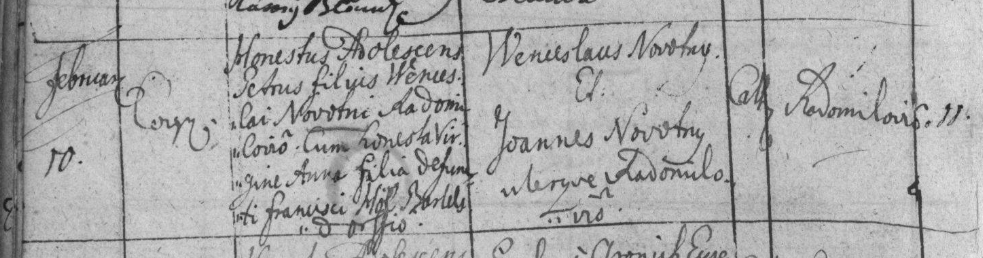 Februar
10.
Honestus Adolescens
Petrus filius Wences-
lai Novotni Radomi-
loviō. Cum honesta Vir-
gine Anna filia defun-
ti Francisci
d'orffio.
Wenceslaus Novotny.
Et.
Joannes Novotny
uterqve Radomilo-
viō.
Cath
Radomiloviō. 11.